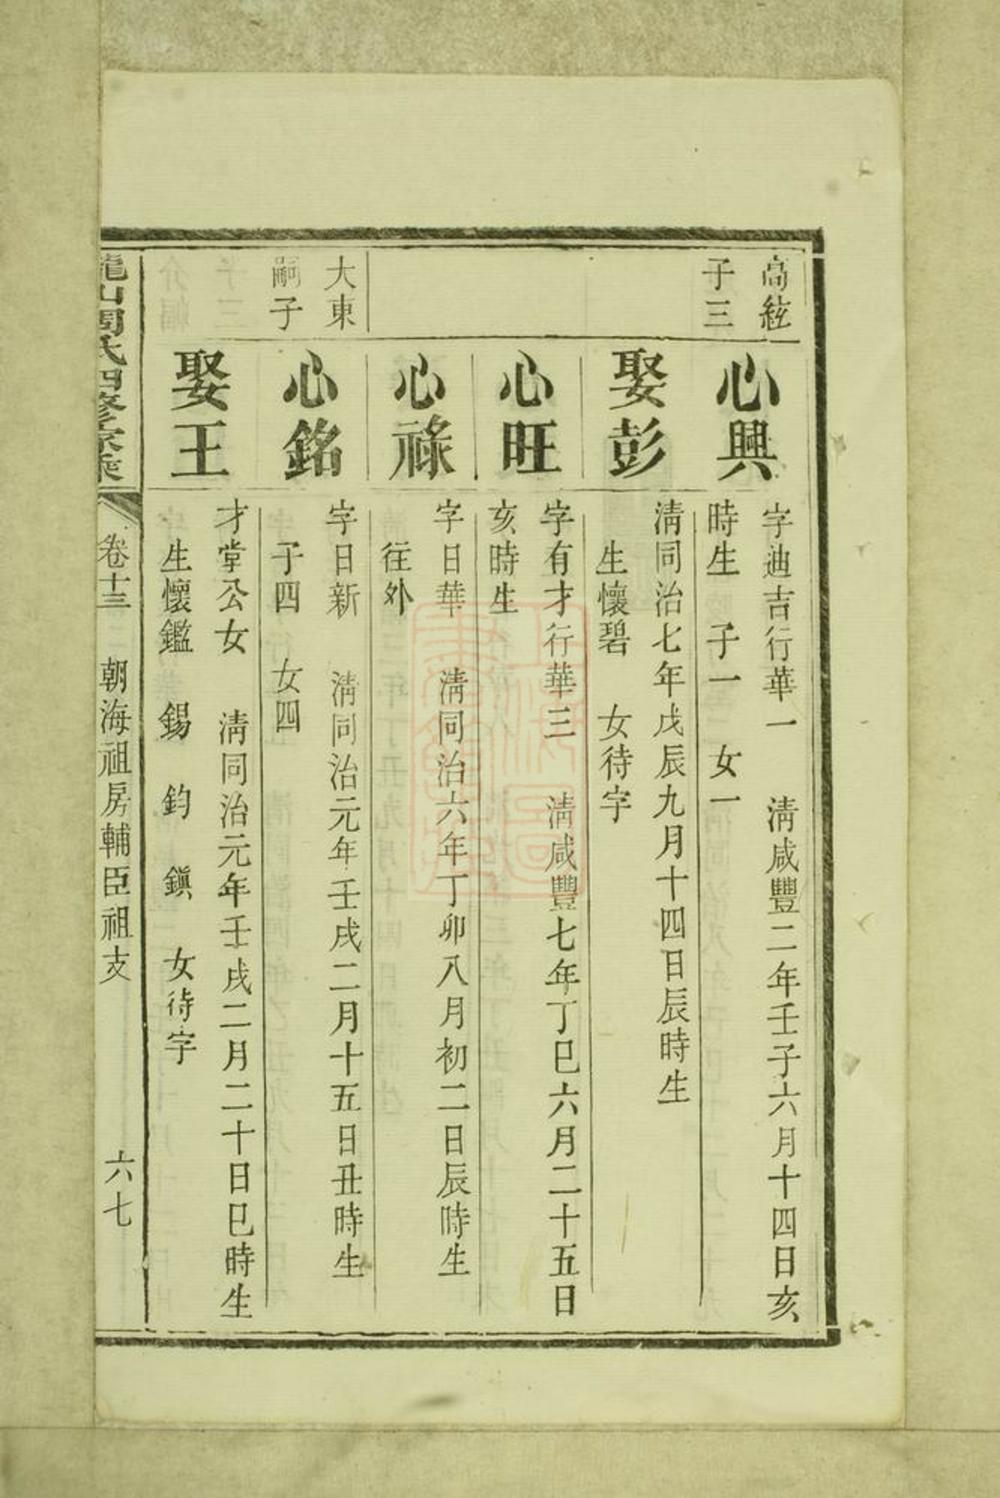 高絃
子三
心興
字迪吉行華一 清咸豐二年壬子六月十四日亥
時生 子一 女一
娶彭
清同治七年戊辰九月十四日辰時生
生懷碧 女待字
心旺
字有才行華三 清咸豐七年丁巳六月二十五日
亥時生
心祿
字日華 清同治六年丁卯八月初二日辰時生
往外
大東
嗣子
心銘
字日新 清同治元年壬戌二月十五日丑時生
子四 女四
娶王
才堂公女 清同治元年壬戌二月二十日巳時生
生懷鑑 錫 鈞 鎭 女待字
龍山周氏四修家乘
卷十三 朝海祖房輔臣祖支
六七